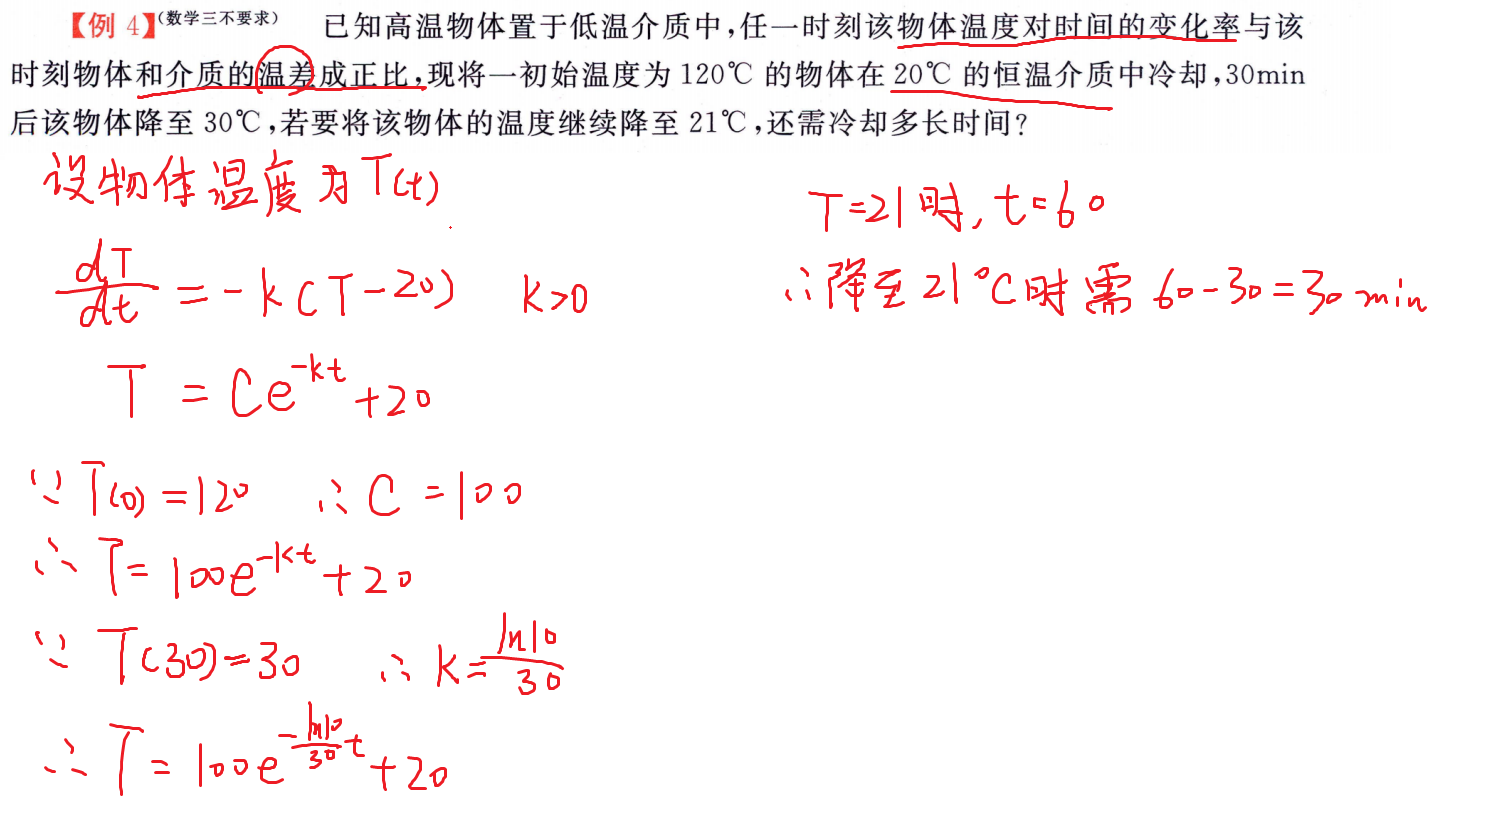 【例 4】(数学三不要求) 已知高温物体置于低温介质中,任一时刻该物体温度对时间的变化率与该
时刻物体和介质的温差成正比,现将一初始温度为 120℃ 的物体在 20℃ 的恒温介质中冷却,30min
后该物体降至 30℃,若要将该物体的温度继续降至 21℃,还需冷却多长时间?
设物体温度为T(t)
dT/dt = -k(T-20) k>0
T = Ce^{-kt}+20
∵ T(0)=120 ∴ C=100
∴ T=100e^{-kt}+20
∵ T(30)=30 ∴ k=ln10/30
∴ T=100e^{-ln10/30 t}+20
T=21时, t=60
∴降至21°C时需 60-30=30 min